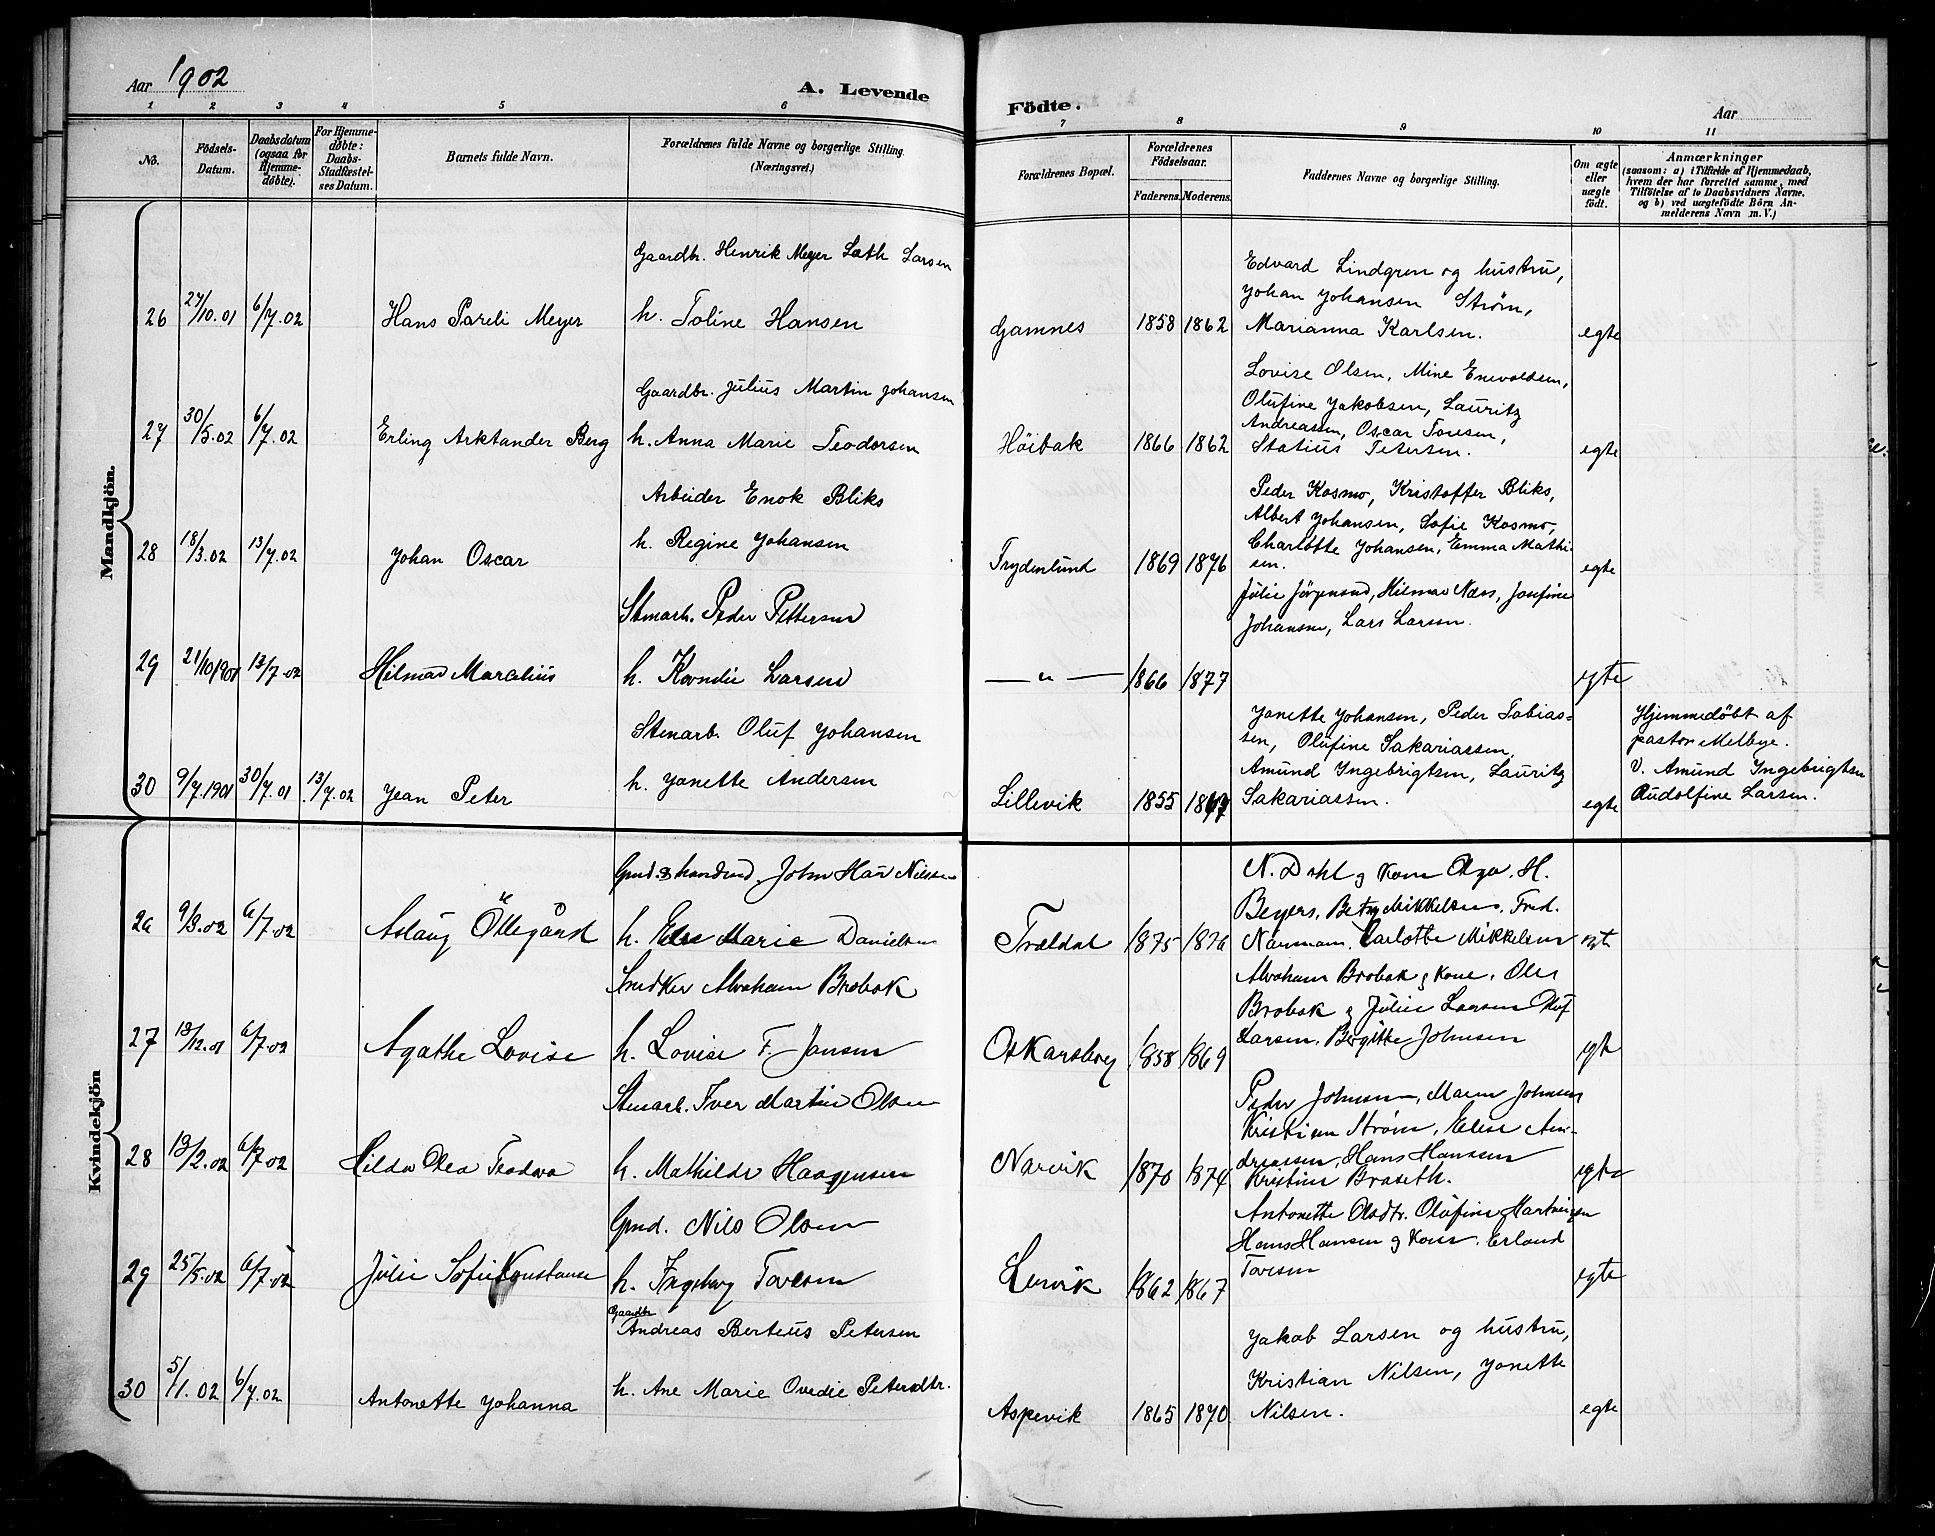 Aar 1902
A. Levende
Födte.
Aar
1 2 3 4 5 6 7 8 9 10 11
No.
Födsels-
Datum.
Daabsdatum
(ogsaa for
Hjemme-
døbte).
For Hjemme-
døbte:
Daabs-
Stadfæstel-
ses Datum.
Barnets fulde Navn.
Forældrenes fulde Navne og borgerlige Stilling.
(Næringsvei.)
Forældrenes Bopæl.
Forældrenes
Födselsaar.
Faderens. Moderens.
Faddernes Navne og borgerlige Stilling.
Om ægte
eller
uægte
födt.
Anmærkninger
(saasom: a) i Tilfælde af Hjemmedaab,
hvem der har forrettet samme, med
Tilföielse af to Daabsvidners Navne,
og b) ved uægtefödte Börn An-
melderens Navn m. V.)
Mandkjön.
Gaardbr. Henrik Meyer Loth Larsen
26 27/10.01 6/7.02 Hans Pareli Meyer h. Toline Hansen
Gamnes 1858 1862
Edvard Lindgren og hustru,
Johan Johansen Strøm,
Marianna Karlsen.
egte
Gaardbr. Julius Martin Johansen
27 30/5.02 6/7.02 Erling Arktander Berg h. Anna Marie Teodorsen
Höibak 1866 1862
Lovise Olsen, Mine Enevoldsen,
Olufine Jakobsen, Lauritz
Andreassen, Oscar Toresen,
Statius Petersen.
egte
Arbeider Enok Bliks
28 18/3.02 13/7.02 Johan Oscar h. Regine Johansen
Frydenlund 1869 1876
Peder Kosmo, Kristoffer Bliks,
Albert Johansen, Sofie Kosmo,
Charlotte Johansen, Emma Mathi-
sen.
egte
Stenarb. Peder Pettersen
29 21/10 1901 13/7.02 Hilmar Marelius h. Larsen
— " — 1866 1877
Julie Jörgensen, Hilmar Næss, Josefine
Johansen, Lars Larsen.
egte
Stenarb. Oluf Johansen
30 9/7.1901 30/7.01 13/7.02 Jean Peter h. Janette Andersen
Lillevik 1855
Janette Johansen, Peder Tobias-
sen, Olufine Sakariassen,
Amund Ingebrigtsen, Lauritz
Sakariassen.
egte
Hjemmedøbt af
pastor Melbye.
V. Amund Ingebrigtsen
Rudolfine Larsen.
Kvindekjön
John Nilsen
26 9/3.02 6/7.02 Aslaug Öllegård h. Else Marie Danielsen
Trældal 1875 1876
N. Dahl og kone Olga. H.
Beyers, Betzy Mikkelsen. Fred.
Normann, Carlotte Mikkelsen
egt
Snedker Abraham Brobak
27 18/12.01 6/7.02 Agathe Lovise h. Lovise F. Jansen
Oskarsborg 1858 1869
Abraham Brobak og kone. Ole
Brobak og Julie Larsen Oluf
Larsen. Bergitte Johnsen
egt
Stenarb. Iver Martin Olsen
28 19/2.02 6/7.02 Hilda Olea Teodora h. Mathilde Haagensen
Narvik 1870 1874
Peder Johnsen, Maren Johnsen
Kristian Strøm, Elise An-
dreassen, Hans Hanssen
Kristine Braseth.
egte
Gmd. Nils Olsen
29 25/5.02 6/7.02 Julie Sofie Konstanse h. Ingeborg Toresen
Lervik 1862 1867
Antonette Olsdtr. Olufine Martinsen
Hans Hansen og kone. Erland
Toresen
egte
Gaardbr
Andreas Berteus Petersen
30 5/1.02 6/7.02 Antonette Johanna h. Ane Marie Ovedie Petersdtr.
Aspevik 1865 1870
Jakob Larsen og hustru,
Kristian Nilsen, Janette
Nilsen.
egte